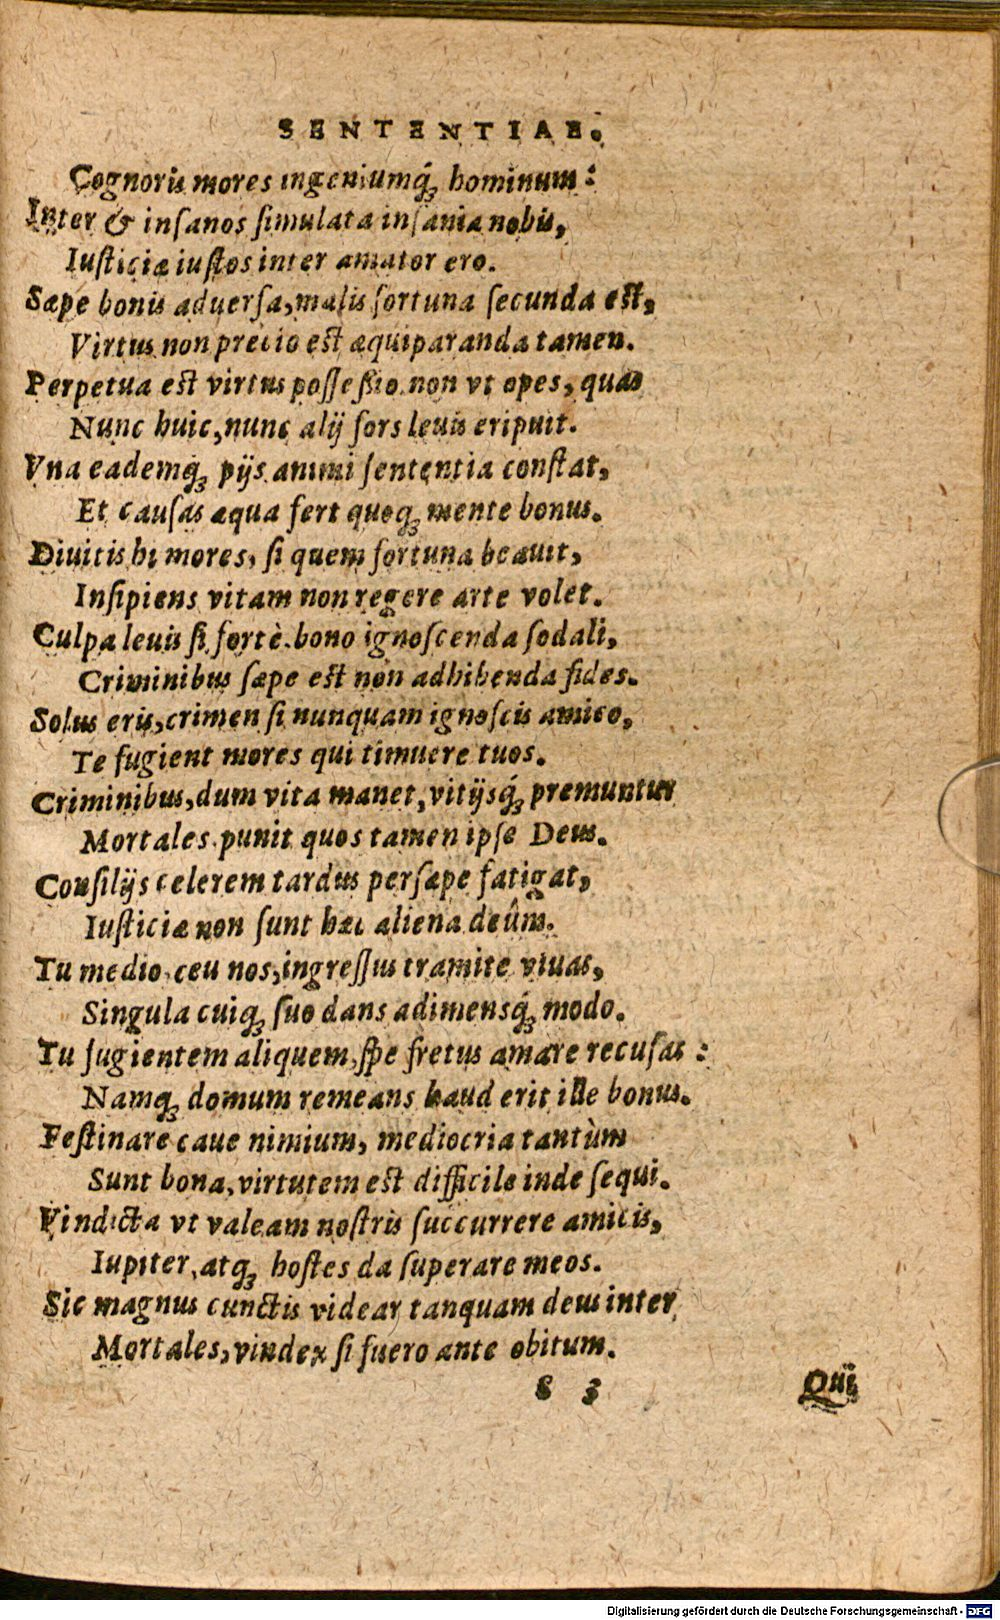 SENTENTIAE.
Cognoris mores ingeniumq́ꝫ hominum:
Inter & inſanos ſimulata inſania nobis,
Iuſticiæ iuſtos inter amator ero.
Sæpe bonis aduerſa, malis fortuna ſecunda eſt,
Virtus non precio eſt æquiparanda tamen.
Perpetua eſt virtus poſſeſsio non vt opes, quas
Nunc huic, nunc alij fors leuis eripuit.
Vna eademq́ꝫ pijs animi ſententia conſtat,
Et cauſas æqua fert quoqꝫ mente bonus.
Diuitis hi mores, ſi quem fortuna beauit,
Inſipiens vitam non regere arte volet.
Culpa leuis ſi fortè bono ignoſcenda ſodali,
Criminibus ſæpe eſt non adhibenda fides.
Solus eris, crimen ſi nunquam ignoſcis amico,
Te fugient mores qui timuere tuos.
Criminibus, dum vita manet, vitijsq́ꝫ premuntur
Mortales punit quos tamen ipſe Deus.
Conſilijs celerem tardus perſæpe fatigat,
Iuſticiæ non ſunt hæc aliena deûm.
Tu medio ceu nos, ingreſſus tramite viuas,
Singula cuiqꝫ ſuo dans adimensq́ꝫ modo.
Tu fugientem aliquem ſpe fretus amare recuſas:
Namqꝫ domum remeans haud erit ille bonus.
Feſtinare caue nimium, mediocria tantùm
Sunt bona, virtutem eſt difficile inde ſequi.
Vindicta vt valeam noſtris ſuccurrere amicis,
Iupiter, atqꝫ hoſtes da ſuperare meos.
Sic magnus cunctis videar tanquam deus inter
Mortales, vindex ſi fuero ante obitum.
S 3
Qui
Digitalisierung gefördert durch die Deutsche Forschungsgemeinschaft - DFG